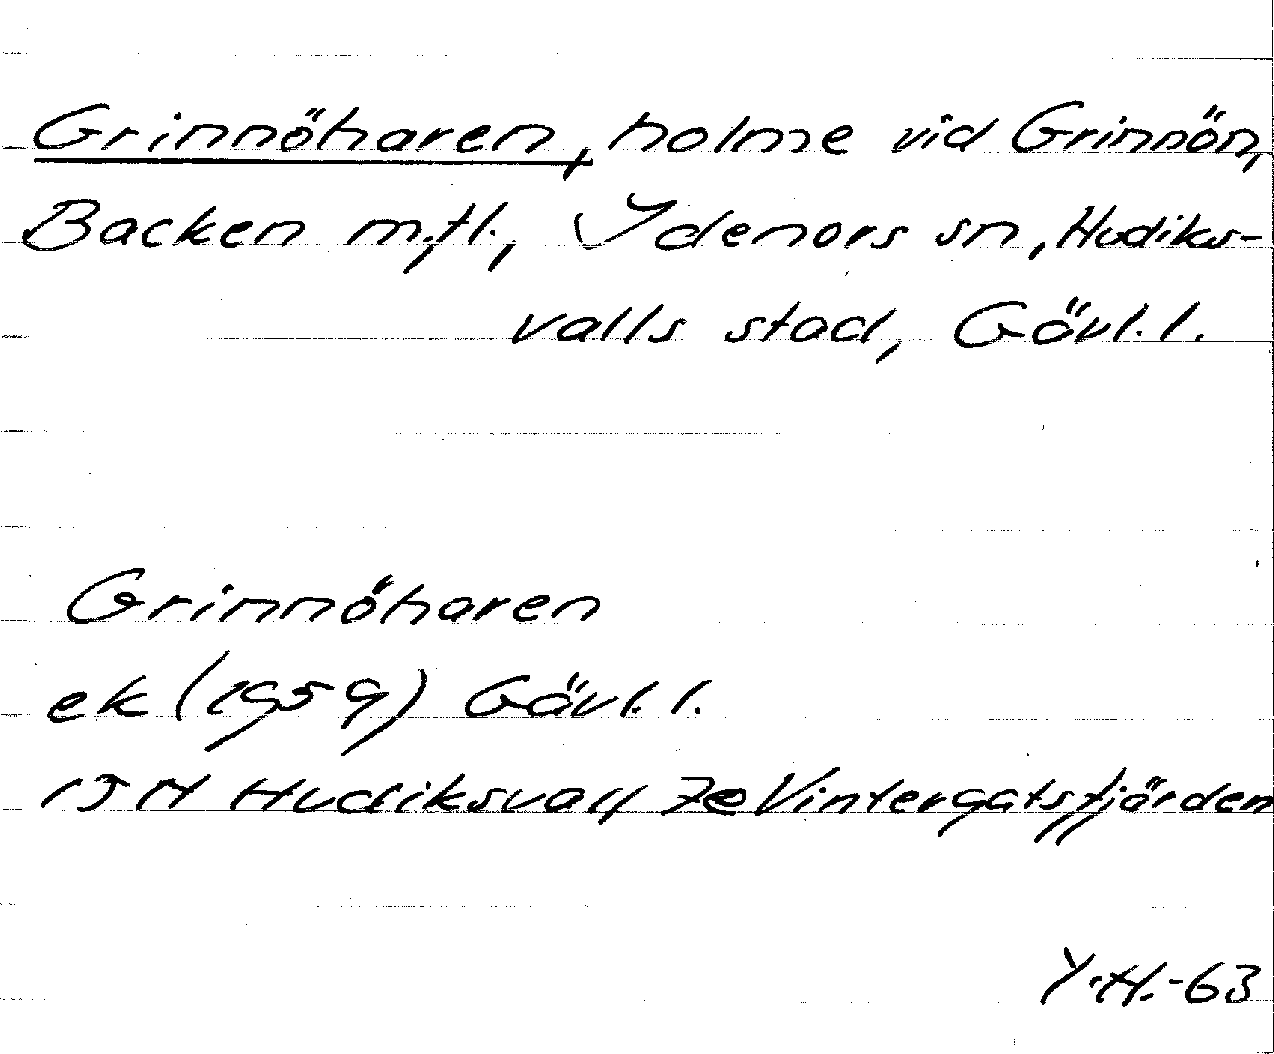 Grinnöharen, holme vid Grinnön,
Backen m.fl., Idenors sn, Hudiks-
valls stad, Gävl. l.
Grinnöharen
ek (1959) Gävl. l.
15H Hudiksvall 7e Vintergatsfjärden
Y.H.-63